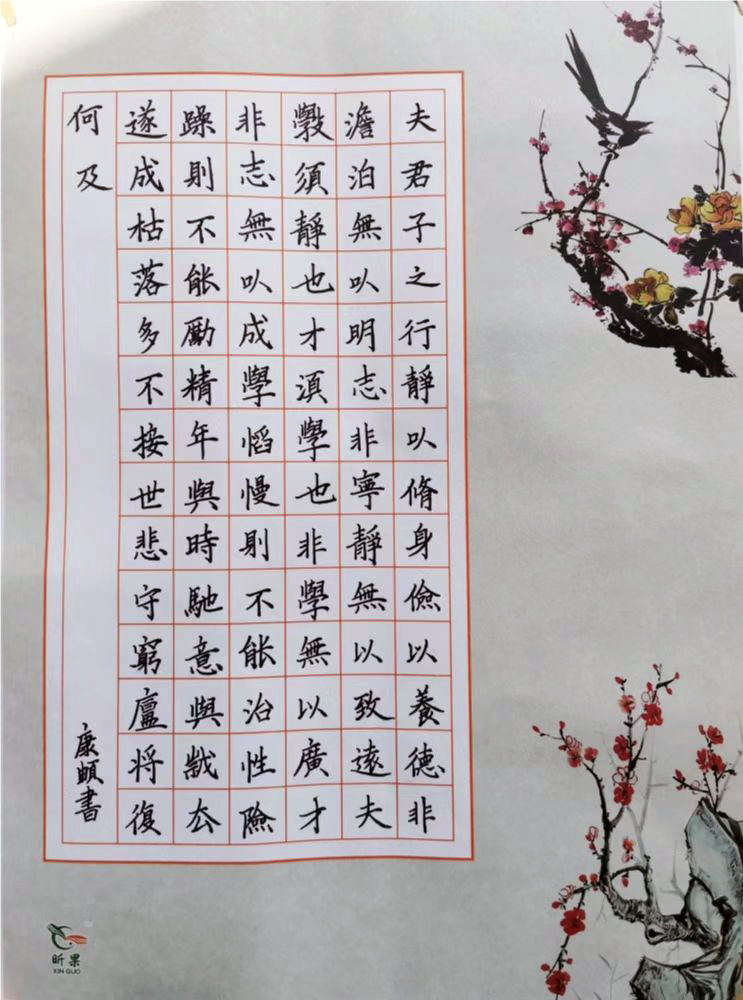 夫君子之行靜以脩身儉以養德非
澹泊無以明志非寧靜無以致遠夫
斅須靜也才湏學也非學無以廣才
非志無以成學慆慢則不能治性險
躁則不能勵精年與時馳意與歲去
遂成枯落多不接世悲守窮廬將復
何及
康頔書
昕果
XIN GUO